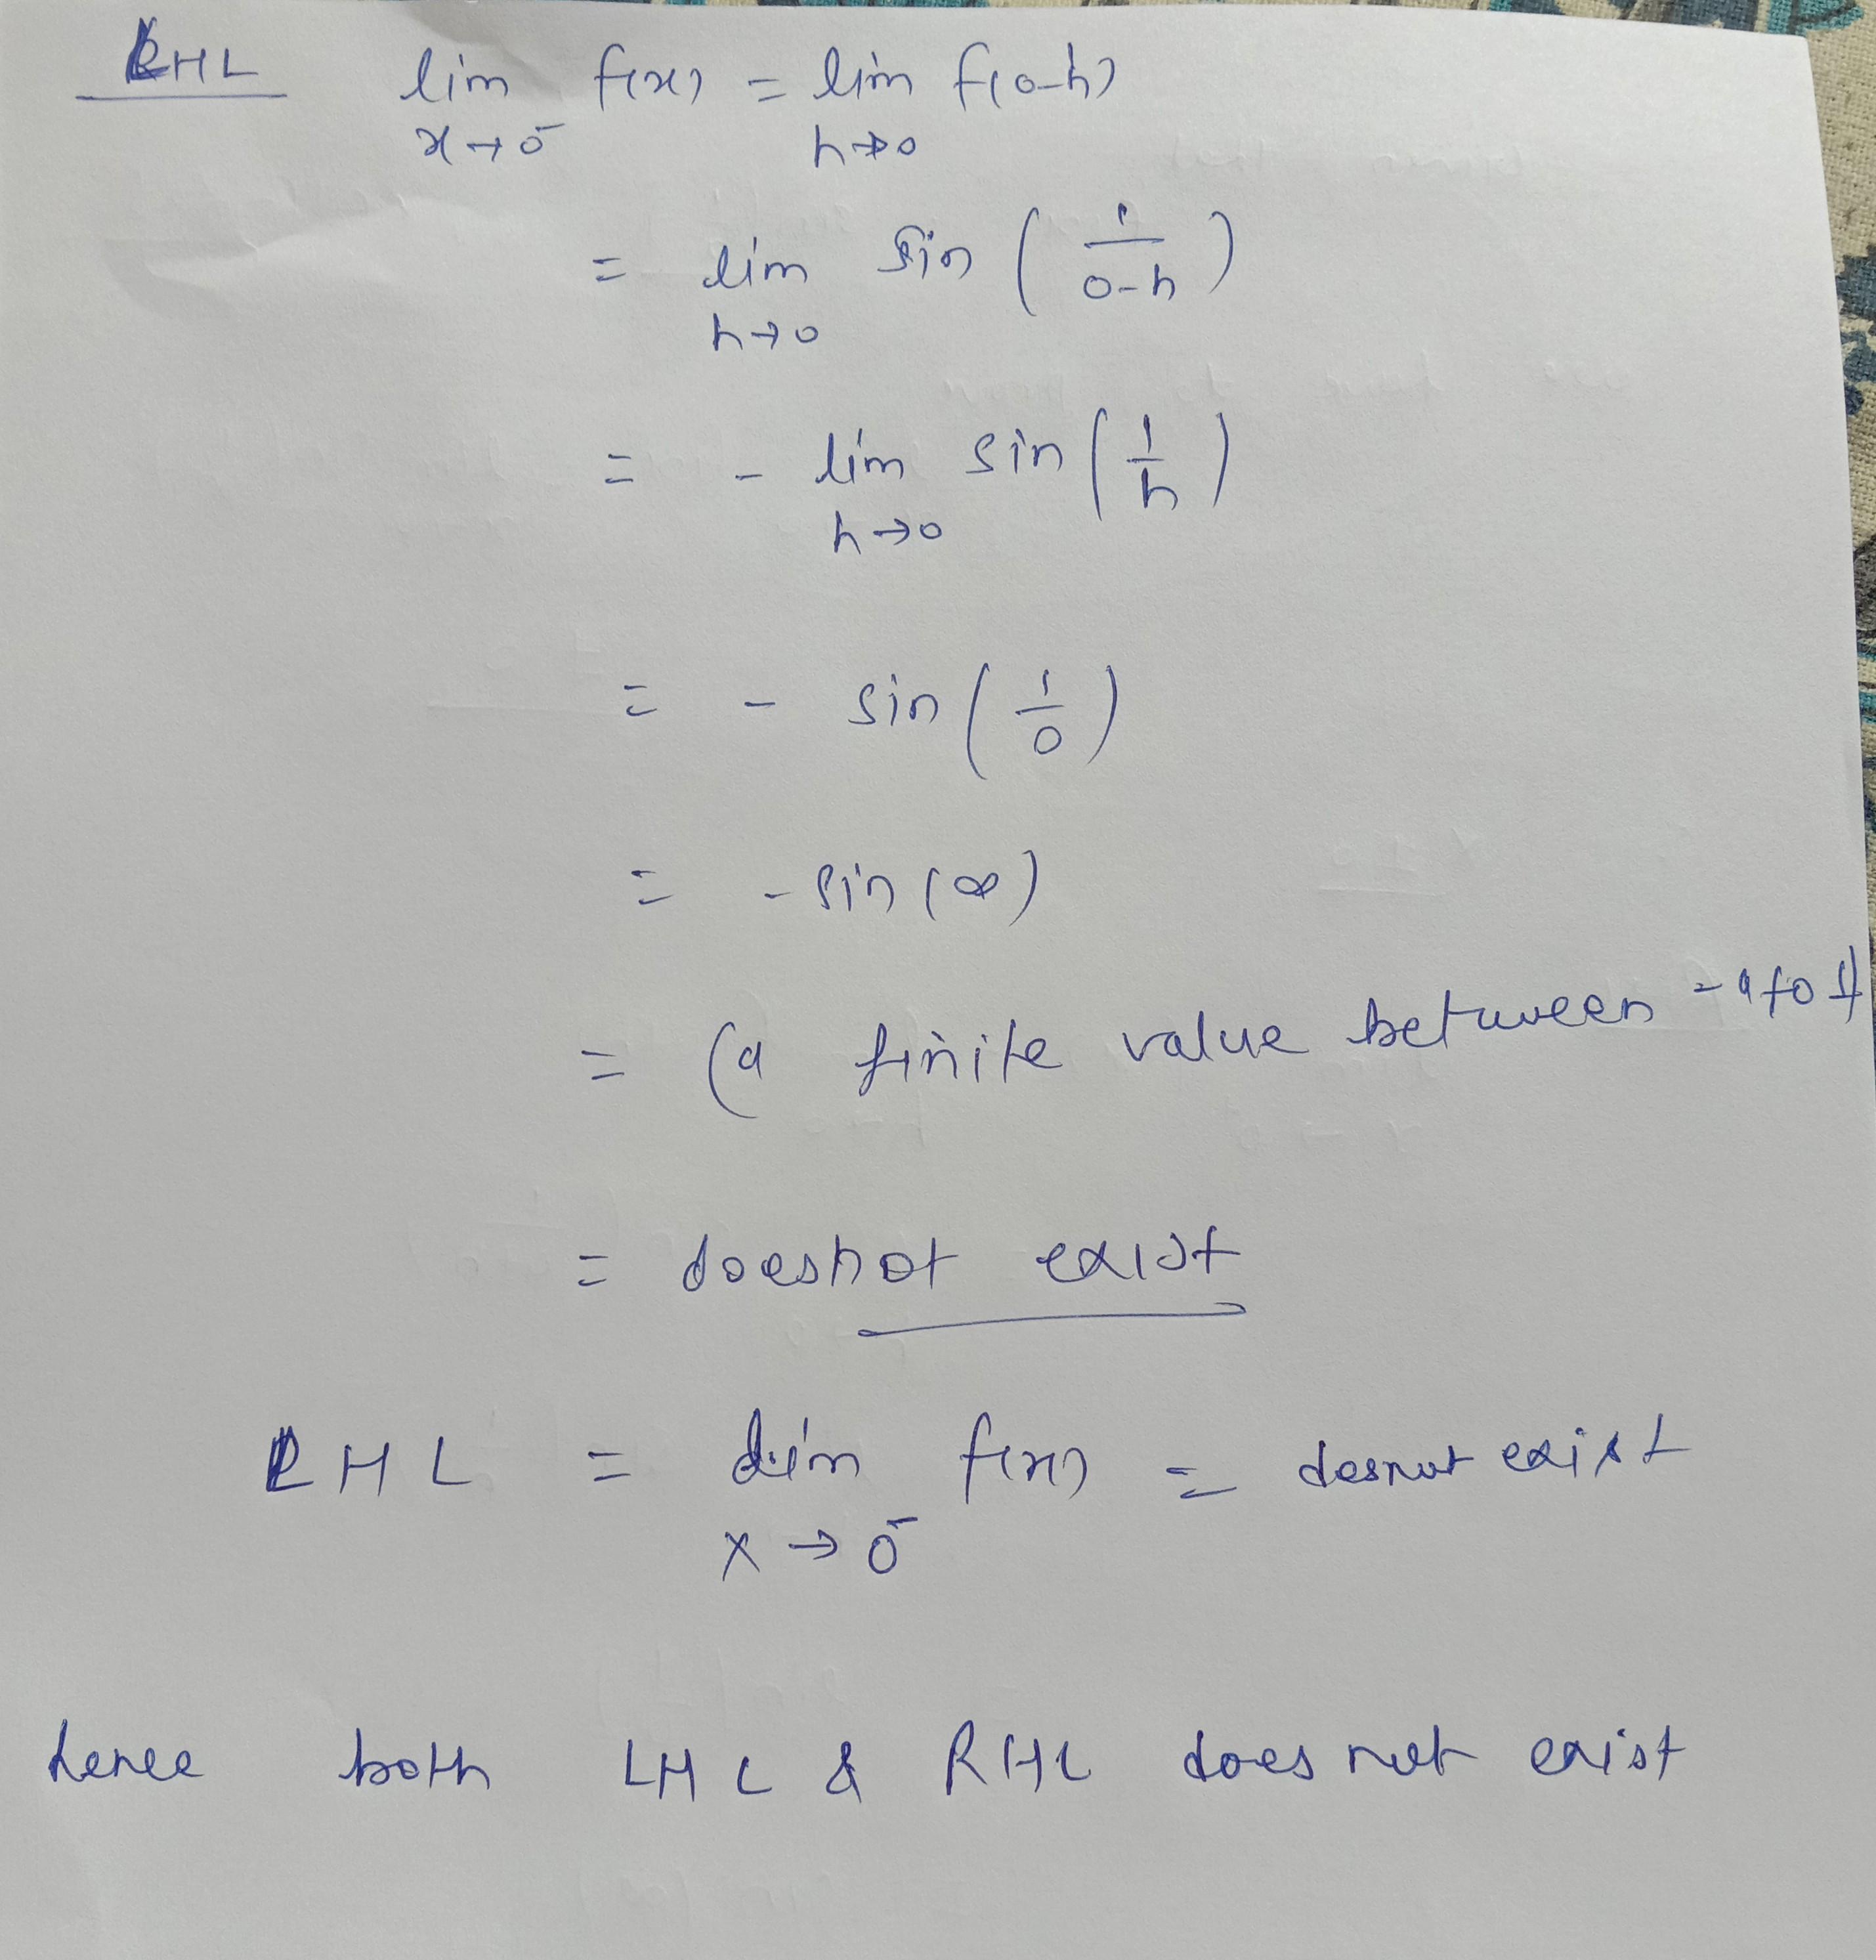 LHL lim f(x) = lim f(0-h)
x→0⁻ h→0
= lim sin (1/(0-h))
h→0
= - lim sin (1/h)
h→0
= - sin (1/0)
= - sin (∞)
= (a finite value between -1 to 1)
= doesnot exist
LHL = lim f(x) = desnot exist
x→0⁻
hence both LHL & RHL does not exist